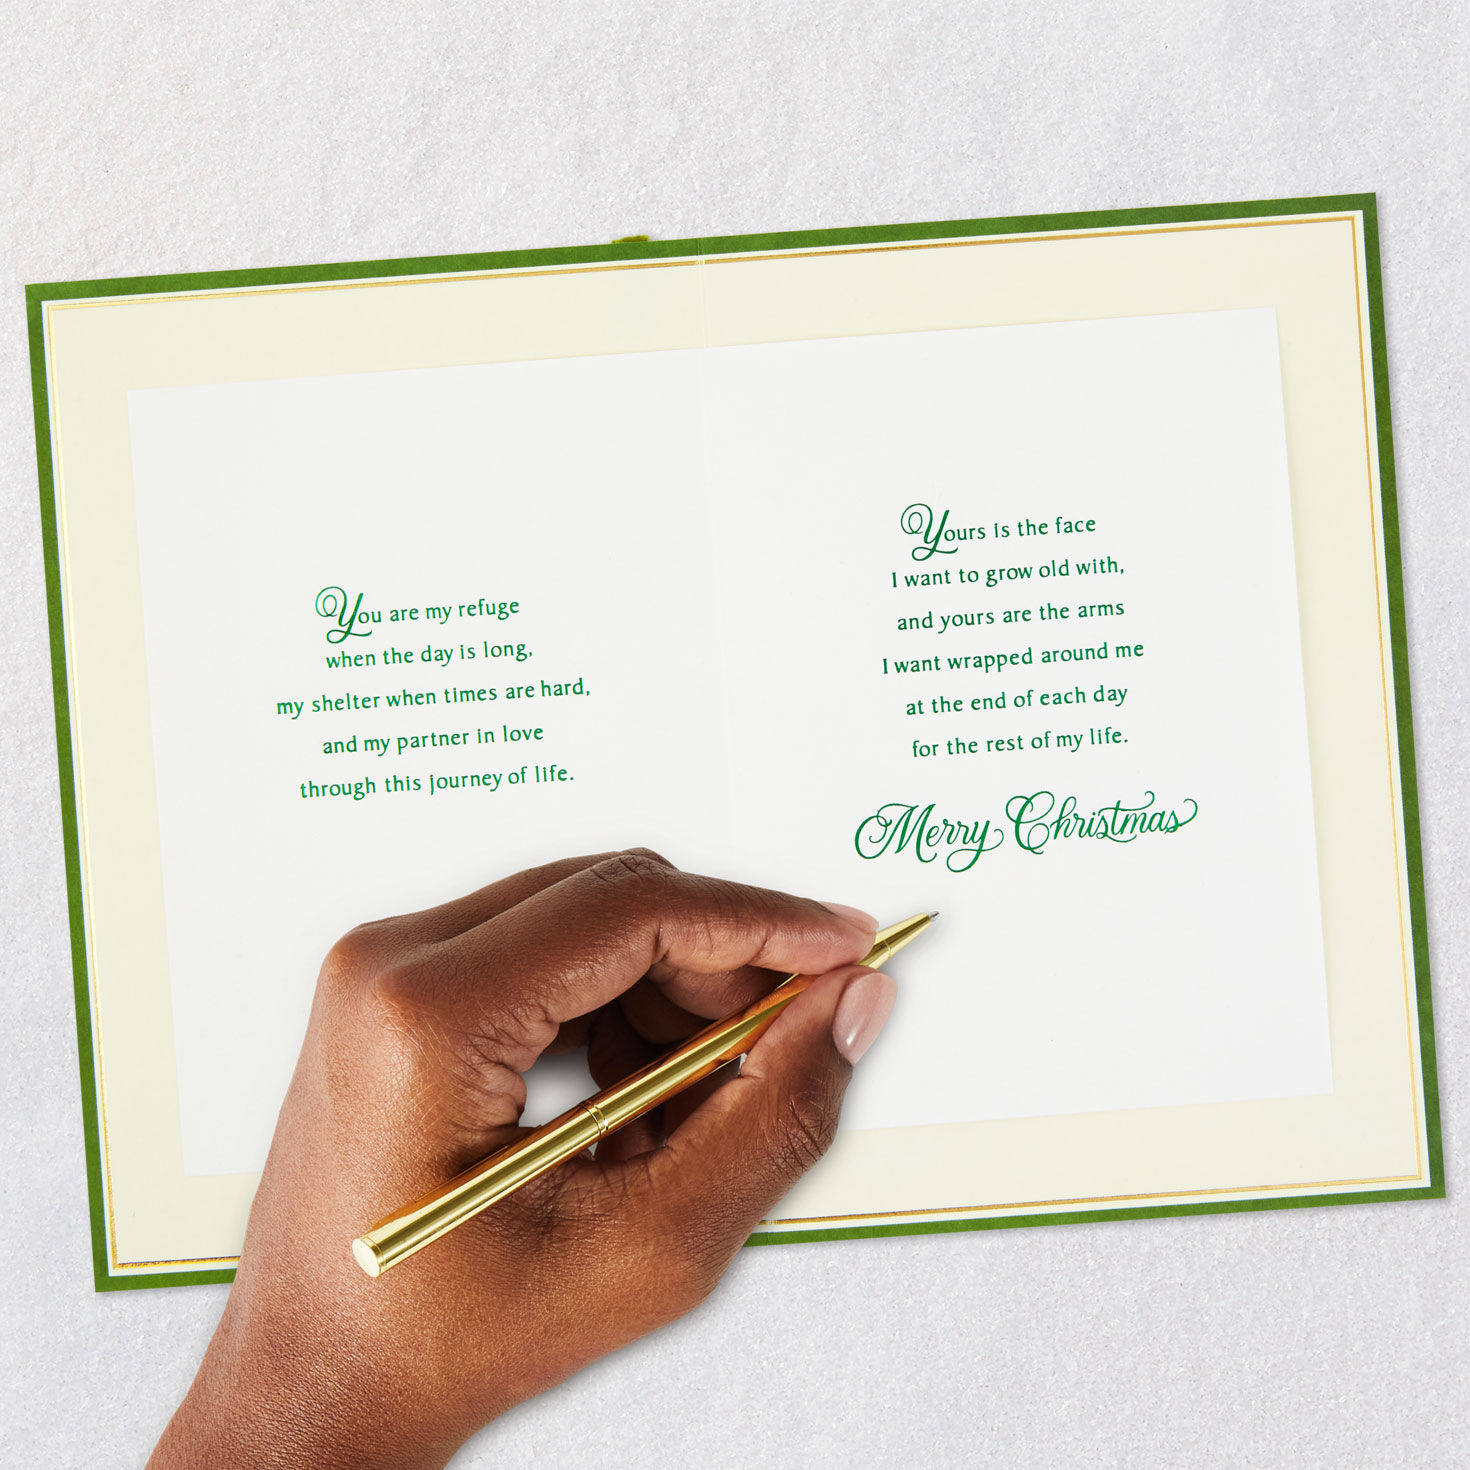 You are my refuge
when the day is long,
my shelter when times are hard,
and my partner in love
through this journey of life.
Yours is the face
I want to grow old with,
and yours are the arms
I want wrapped around me
at the end of each day
for the rest of my life.
Merry Christmas